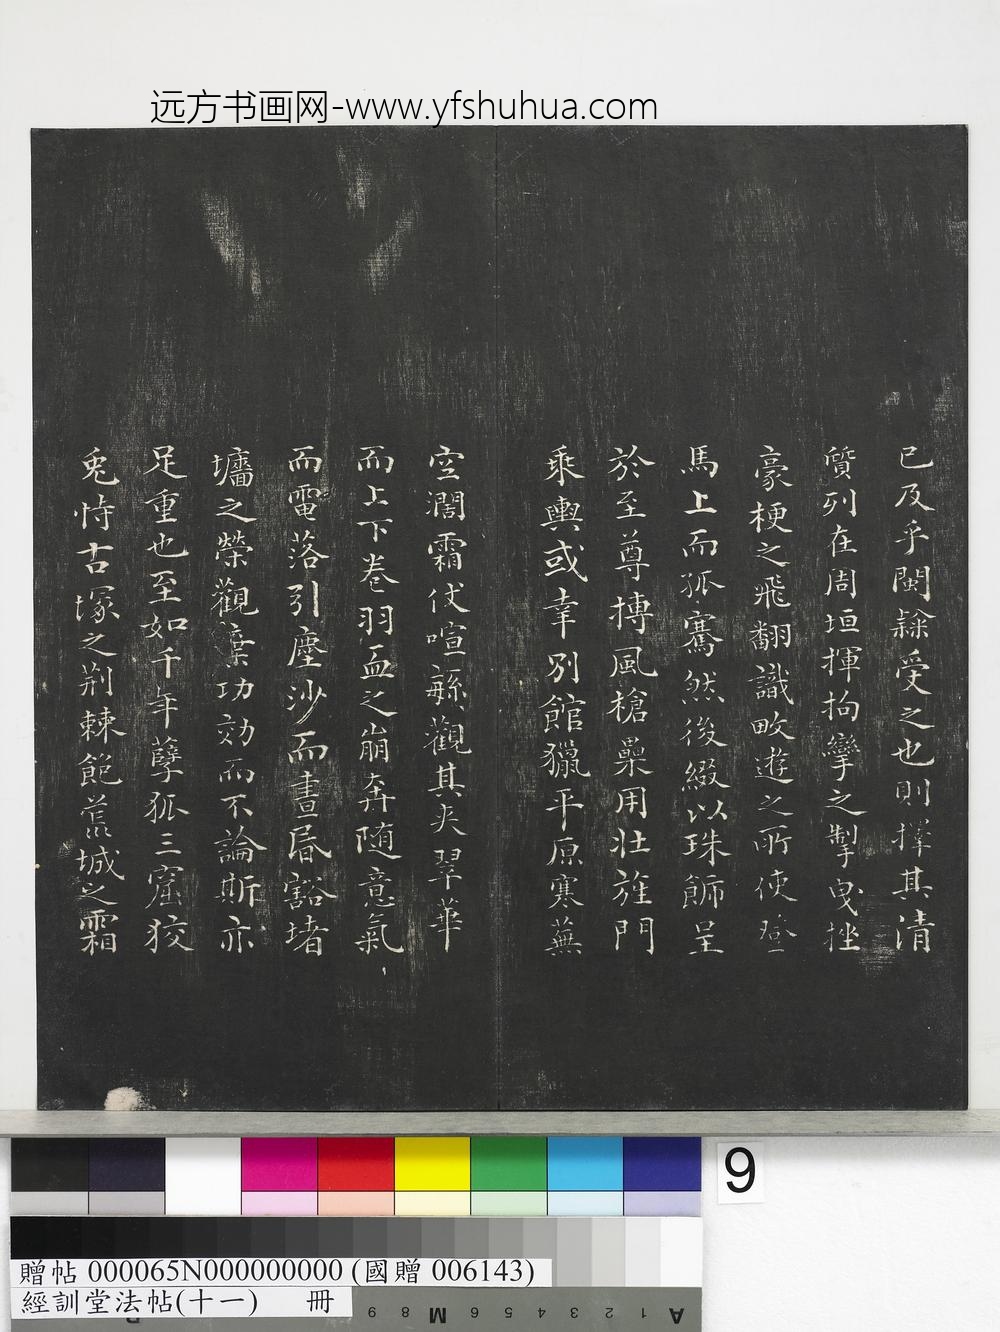 远方书画网-www.yfshuhua.com
已及乎閽隸受之也則擇其清
質列在周垣揮拘攣之掣曳挫
豪梗之飛翻識畋遊之所使登
馬上而孤騫然後綴以珠飾呈
於至尊搏風槍纍用壯旌門
乘輿或幸別館獵平原寒蕪
空濶霜仗喧繁觀其夾翠華
而上下卷羽血之崩奔随意氣
而電落引塵沙而晝昏豁堵
墻之榮觀棄功効而不論斯亦
足重也至如千年孽狐三窟狡
兎恃古塚之荆棘飽荒城之霜
9
贈帖 000065N000000000 (國贈 006143)
經訓堂法帖(十一) 冊
A 1 2 3 4 5 6 M 8 8 9